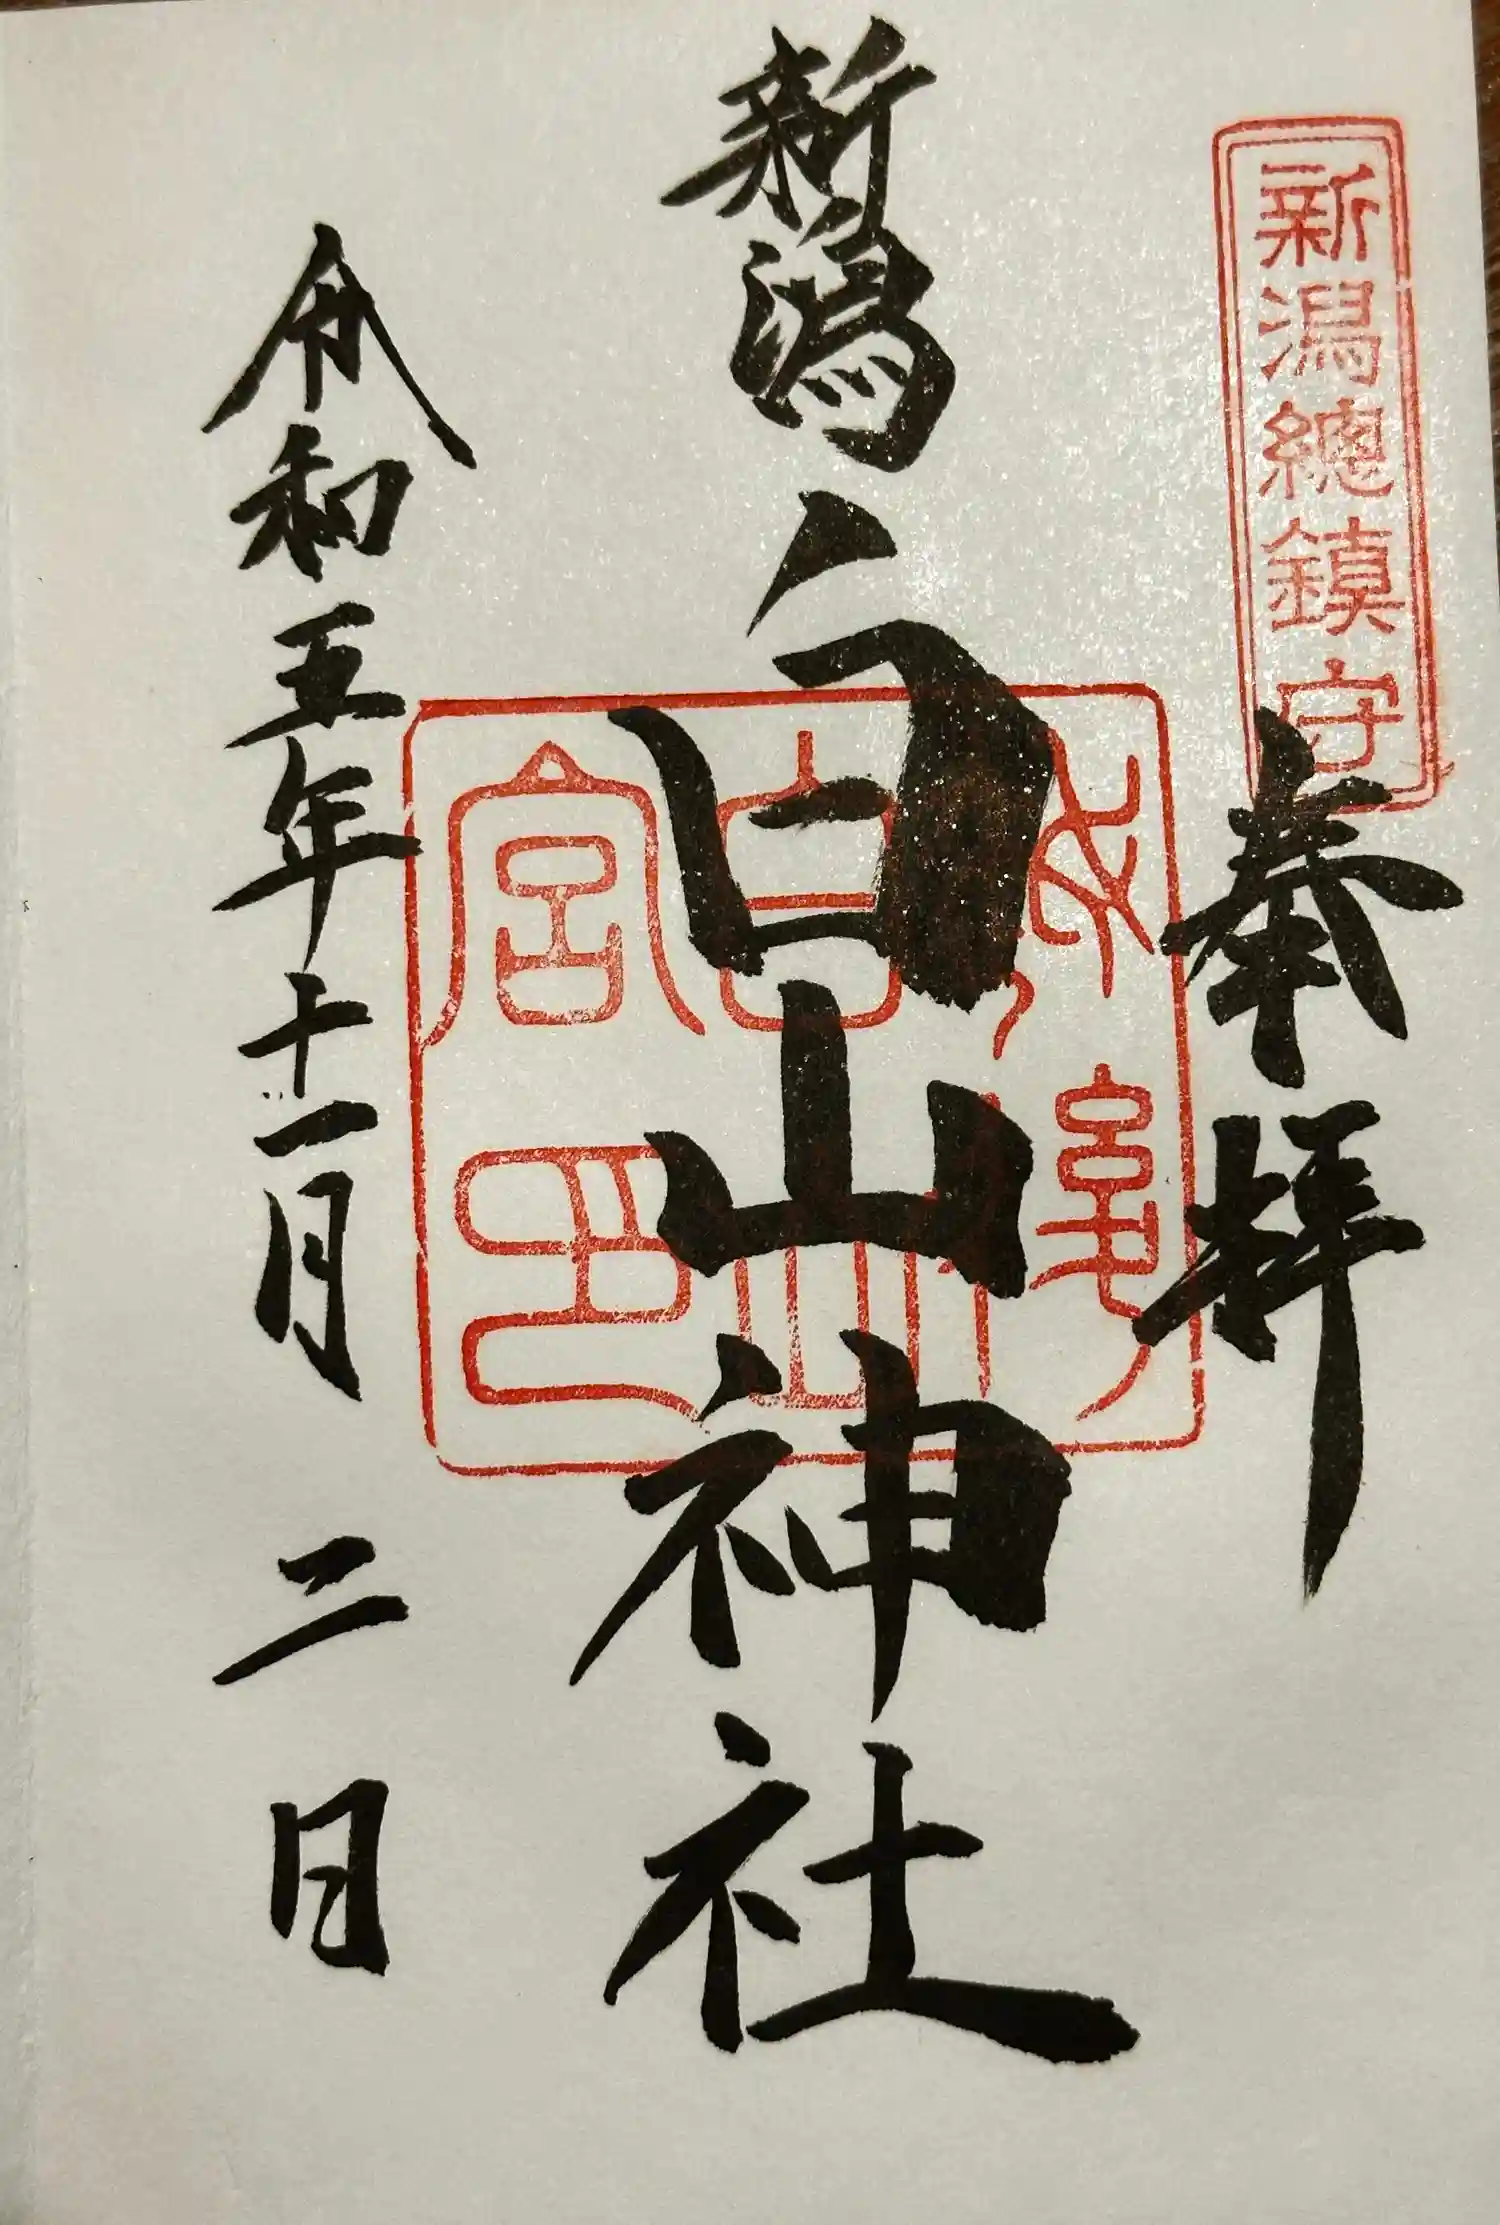 新潟總鎮守
奉拝
新潟白山神社
白山
宮印
令和五年十一月二日